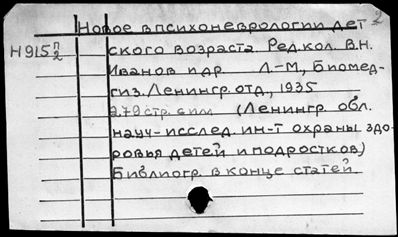 2
Новое в психоневрологии дет
Н915 п/2 ского возраста. Ред.кол. В.Н.
Иванов и др Л.-М, Биомед-
гиз. Ленингр. отд., 1935
279 стр. с илл (Ленингр. обл.
науч-исслед. ин-т охраны здо-
ровья детей и подростков)
Библиогр. в конце статей